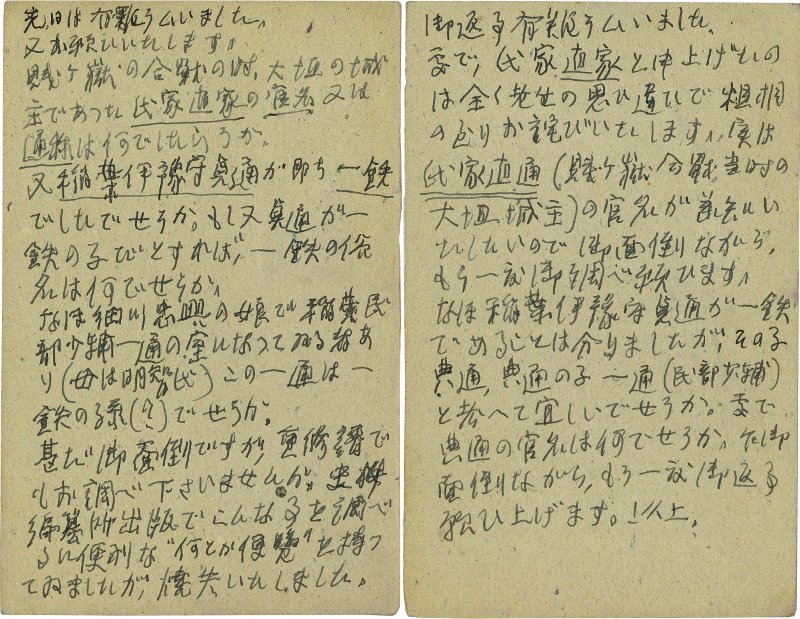 先日は有難うムいました。
又お願ひいたします。
賤ケ嶽の合戦の時、大垣の城
主であつた氏家直家の官名又は
通称は何でしたらうか。
又稲葉伊豫守貞通が即ち一鉄
でしたでせうか。もし又貞通が一
鉄の子でとすれば、一鉄の俗
名は何でせうか。
なほ細川忠興の娘で稲葉民
部少輔一通の室になつてゐる者あ
り(母は明智氏)この一通は一
鉄の孫(?)でせうか。
甚だ御面倒ですが、重修譜で
もお調べ下さいませんか。史料
編纂所出版でこんな事を調べ
るに便利な"何とか便覧"を持つ
てゐましたが、焼失いたしました。
御返事有難うムいました。
処で、氏家直家と申上げたの
は全く老生の思ひ違ひで粗相
の段りお詫びいたします。実は
氏家直通(賤ケ嶽合戦当時の
大垣城主)の官名が承知い
たしたいので御面倒ながら、
もう一度御調べ願ひます。
なほ稲葉伊豫守貞通が一鉄
であることは分りましたが、その子
典通、典通の子一通(民部少輔)
と考へて宜しいでせうか。まで
典通の官名は何でせうか。右御
面倒ながら、もう一度御返事
願ひ上げます。以上。